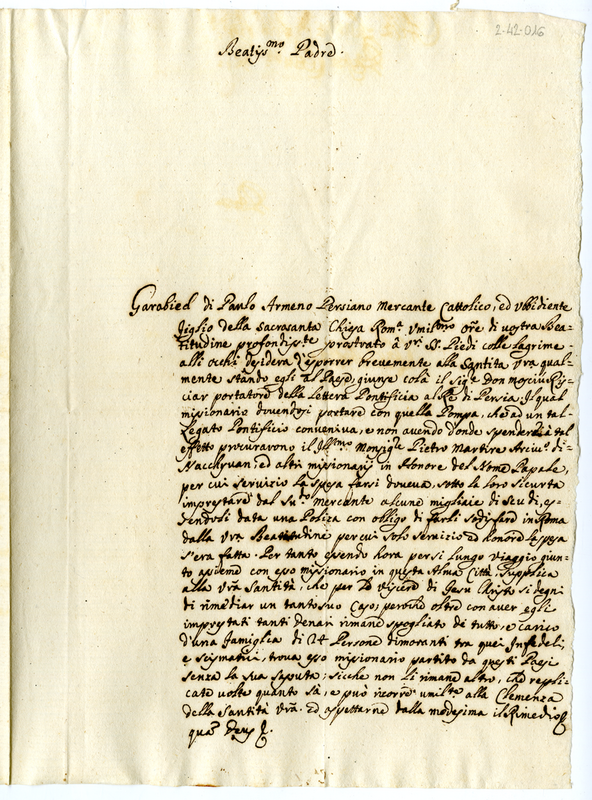 2-42-016
Beatiss.mo Padre.
Garabied di Paulo Armeno Persiano Mercante Cattolico, ed Vbbidiente
figlio della Sacrosanta Chiesa Rom.a Vmiliss.mo ore di vostra Bea-
titudine profondiss.te prostrato à Vri SS. Piedi colle lagrime
alli occhi desidera d'esporrer brevemente alla Santità Vra qual-
mente stando egli al Paese, giunse colà il Sig.re Don
ciar portatore della Lettera Pontificia al Rè di Persia, Il qual
missionario dovendosi portare con quella Pompa, che ad un tal
Legato Pontificio conveniva, e non avendo d'onde spendere à tal
effetto procurarono il Ill.mo Monsig.r Pietro Martire Arciu.o di
Nacchyuan, ed altri missionarij in Honore del Nome Papale,
per cui servizio la spesa farsi doueua, sotto la loro sicurta
imprestare dal su.o Mercante alcune migliaie di Scudi, es-
sendosli data una Poliza con obligo di farli sodisfare in Roma
dalla Vra Beatitudine per cui solo servizio ed honore la spesa
s'era fatta. Per tanto essendo hora per si lungo viaggio giun-
to assieme con esso missionario in questa Alma Città, Supplica
alla Vra Santità, che per le viscere di Jesu Christo si degni
di rimediar un tanto suo Caso, perche oltre con aver egli
imprestati tanti denari rimane spogliato de tutto, e carico
d'una famiglia di 24 Persone dimoranti tra quei Infedeli,
e scismatici, trova esso missionario partito da questi Paesi
senza la sua saputa; sicche non li rimane altro, che repli-
cate volte quanto sà, e può ricorre umilte alla Clemenza
della Santità Vra. Ed aspettarne dalla medesima il Rimedio
qua Deus